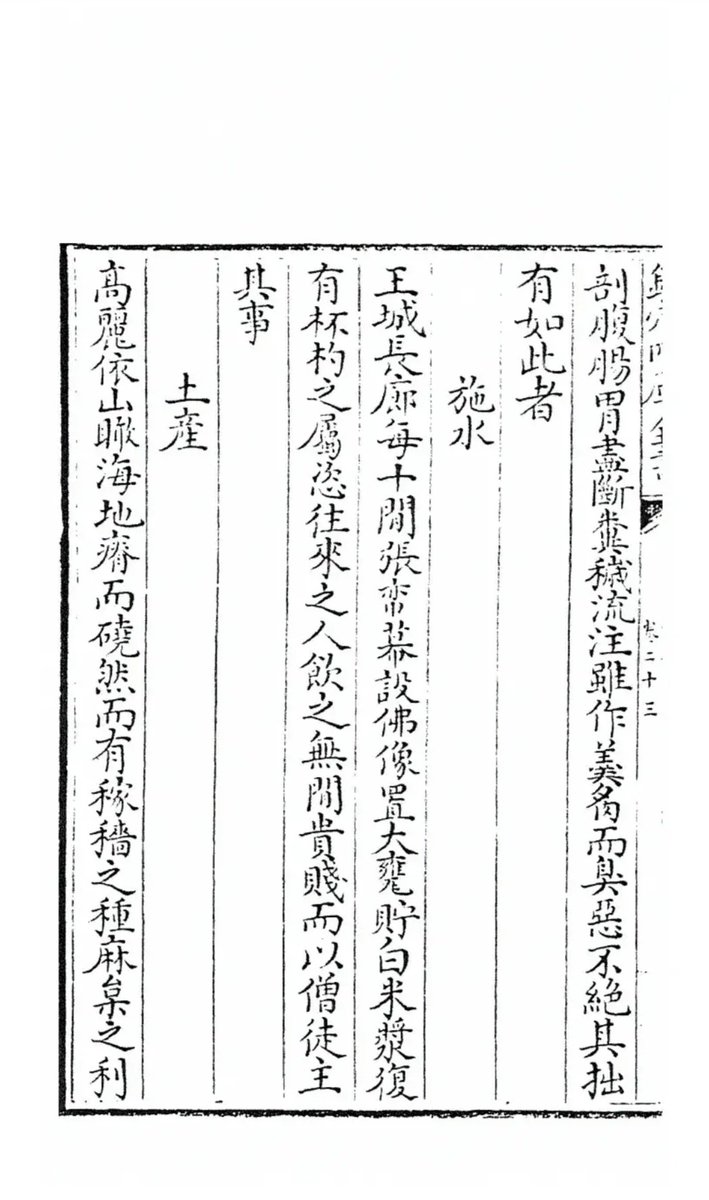 欽定四庫全書
卷二十三
剖腹腸胃盡斷糞穢流注雖作羹胾而臭惡不絕其拙
有如此者
施水
王城長廊每十間張帟幕設佛像置大甕貯白米漿復
有杯杓之屬恣往來之人飲之無間貴賤而以僧徒主
其事
土產
高麗依山瞰海地瘠而磽然而有稼穡之種麻枲之利